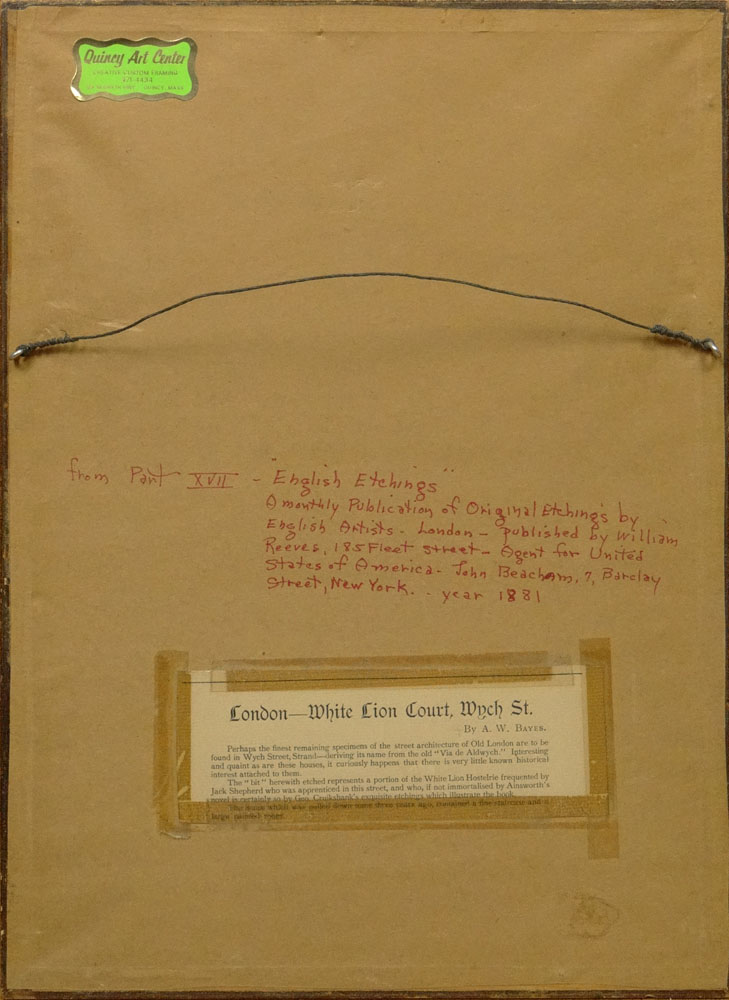 Quincy Art Center
CREATIVE CUSTOM FRAMING
QUINCY, MASS.
from Part XVII - "English Etchings"
A monthly Publication of Original Etchings by
English Artists - London - published by William
Reeves, 185 Fleet street - Agent for United
States of America - John Beacham, 7, Barclay
Street, New York. - year 1881
London—White Lion Court, Wych St.
By A. W. Bayes.
Perhaps the finest remaining specimens of the street architecture of Old London are to be
found in Wych Street, Strand—deriving its name from the old "Via de Aldwych." Interesting
and quaint as are these houses, it curiously happens that there is very little known historical
interest attached to them.
The "bit" herewith etched represents a portion of the White Lion Hostelrie frequented by
Jack Shepherd who was apprenticed in this street, and who, if not immortalised by Ainsworth's
novel is certainly so by Geo. Cruikshank's exquisite etchings which illustrate the book.
The house which was pulled down some three years ago, contained a fine staircase and a
large panelled room.